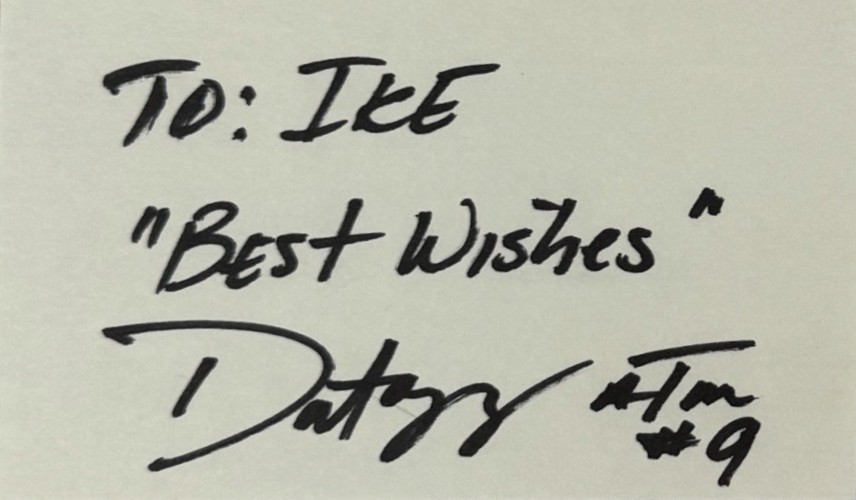 TO: IKE
"BEST Wishes"
Dat ATM
#9